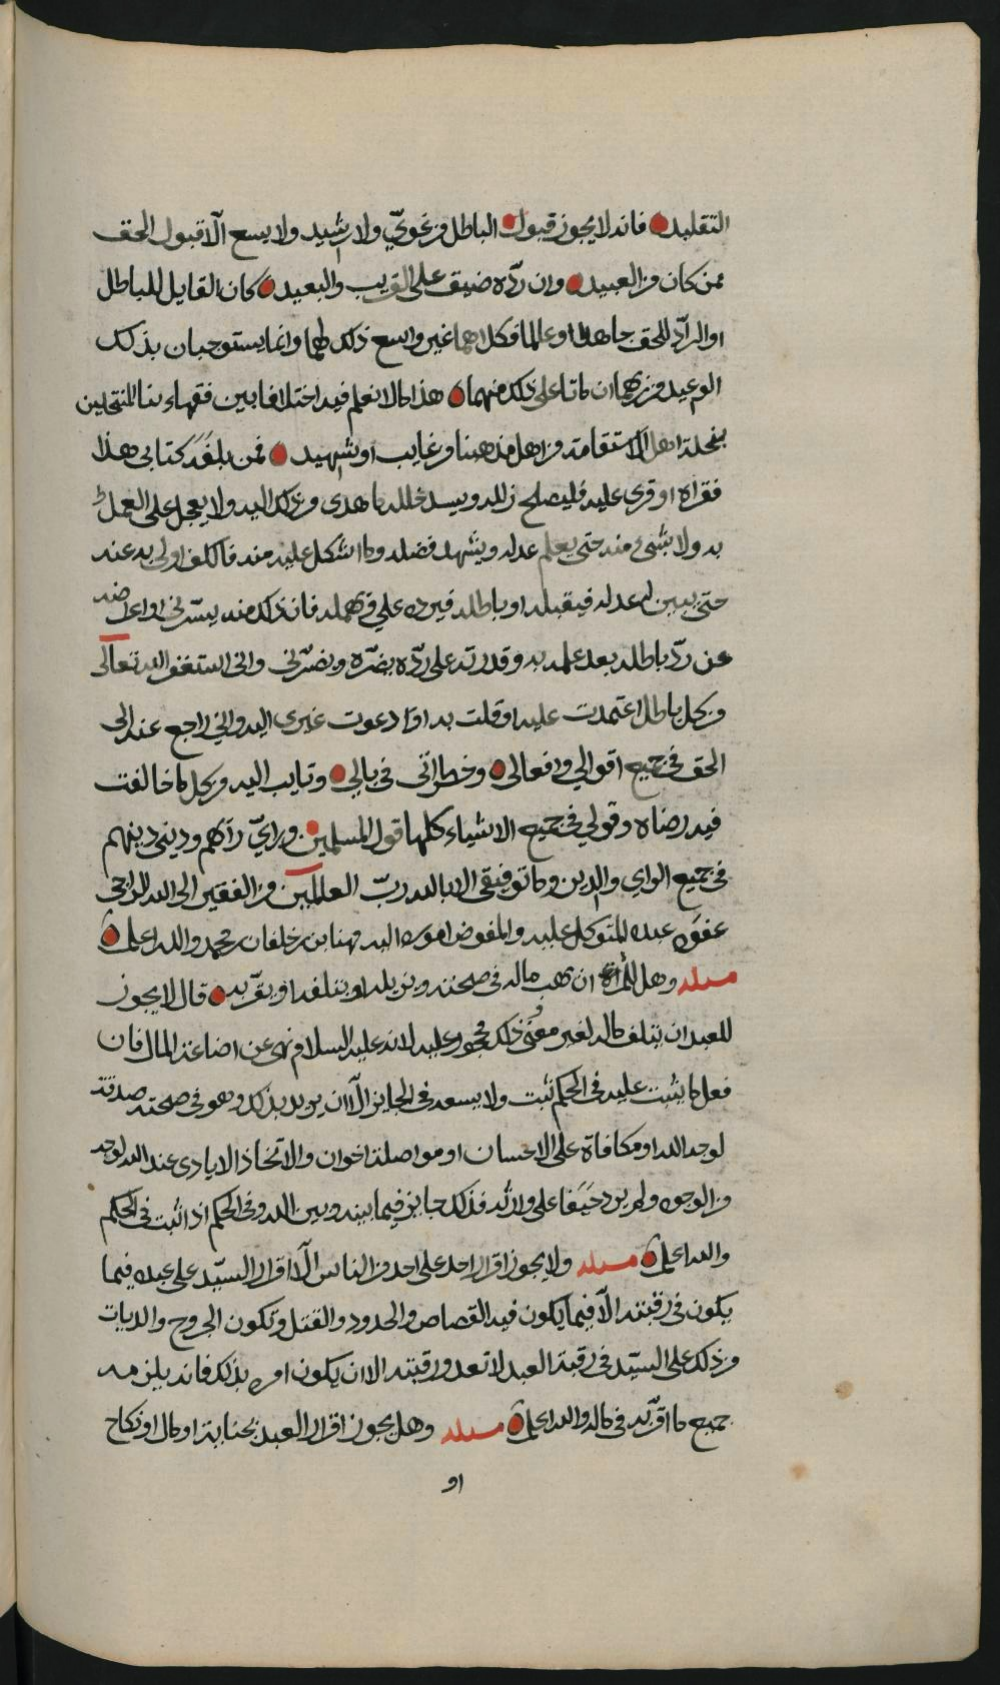 التقليد فانه لا يجوز قبول الباطل من غويّ ولا رشيد ولا يسع الّا قبول الحق
ممن كان من العبيد وان ردّه ضيق على القريب والبعيد كان القايل للباطل
او الرادّ للحق جاهلا او عالما فكلاهما غير واسع ذلك لهما وانما يستوجبان بذلك
الوعيد من ربهما ان ماتا على ذلك منهما هذا مالا نعلم فيه اختلافا بين فقهاءنا المنتحلين
بنحلة اهل الاستقامة من اهل مذهبنا من غايب او شهيد فمن بلغه كتابي هذا
فقراه او قرئ عليه فليصلح زلله ويسد خلله بما هدى من ذلك اليه ولا يعجل على العمل
به ولا بشئ منه حتى يعلم عدله ويشهد فضله وما اشكل عليه منه فالكف اولى به عنه
حتى يبين له عدله فيقبله او باطله فيرده على فهمله فان ذلك منه يسرني واعراضه
عن ردّ باطله بعد علمه به وقدرته على ردّه يضرّه ويضرّني واني استغفر الله تعالى
من كل باطل اعتمدت عليه او قلت به او دعوت غيري اليه واني راجع عنه الى
الحق في جميع اقوالي وافعالي وخطراتي في بالي وتايب اليه من كل ما خالفت
فيه رضاه وقولي في جميع الاشياء كلها قول المسلمين ورايي رايهم وديني دينهم
في جميع الراي والدين وما توفيقي الا بالله ربّ العالمين من الفقير الى الله الراجي
عفوه عبده المتوكل عليه والمفوض اموره اليه مهنا بن خلفان بن محمد والله اعلم
مسلة وهل للمراة ان يهب ماله في صحته ويزيله او يتلفه او يقرّ به قال لا يجوز
للعبد ان يتلف ماله لغير معنى وذلك محجور عليه لانه عليه السلام نهى عن اضاعة المال فان
فعل ما يثبت عليه في الحكم ثبت ولا يسعه في الجايز الّا ان يريد بذلك وهو في صحته صدقة
لوجه الله او مكافاة على الاحسان او مواصلة اخوان والاتخاذ الايادي عند الله لوجه
من الوجوه ولم يرد حيفا على وارثه فذلك جايز فيما بينه وبين الله وفي الحكم اذا ثبت في الحكم
والله اعلم مسلة ولا يجوز اقرار احد على احد من الناس الّا اقرار السيّد على عبده فيما
يكون في رقبته الّا فيما يكون فيه القصاص والحدود والقتل وتكون الجروح والديات
من ذلك على السيّد في رقبة العبد لا تعدو رقبته الا ان يكون امره بذلك فانه يلزمه
جميع ما اقرّ به في ماله والله اعلم مسلة وهل يجوز اقرار العبد بجناية او مال او نكاح
او